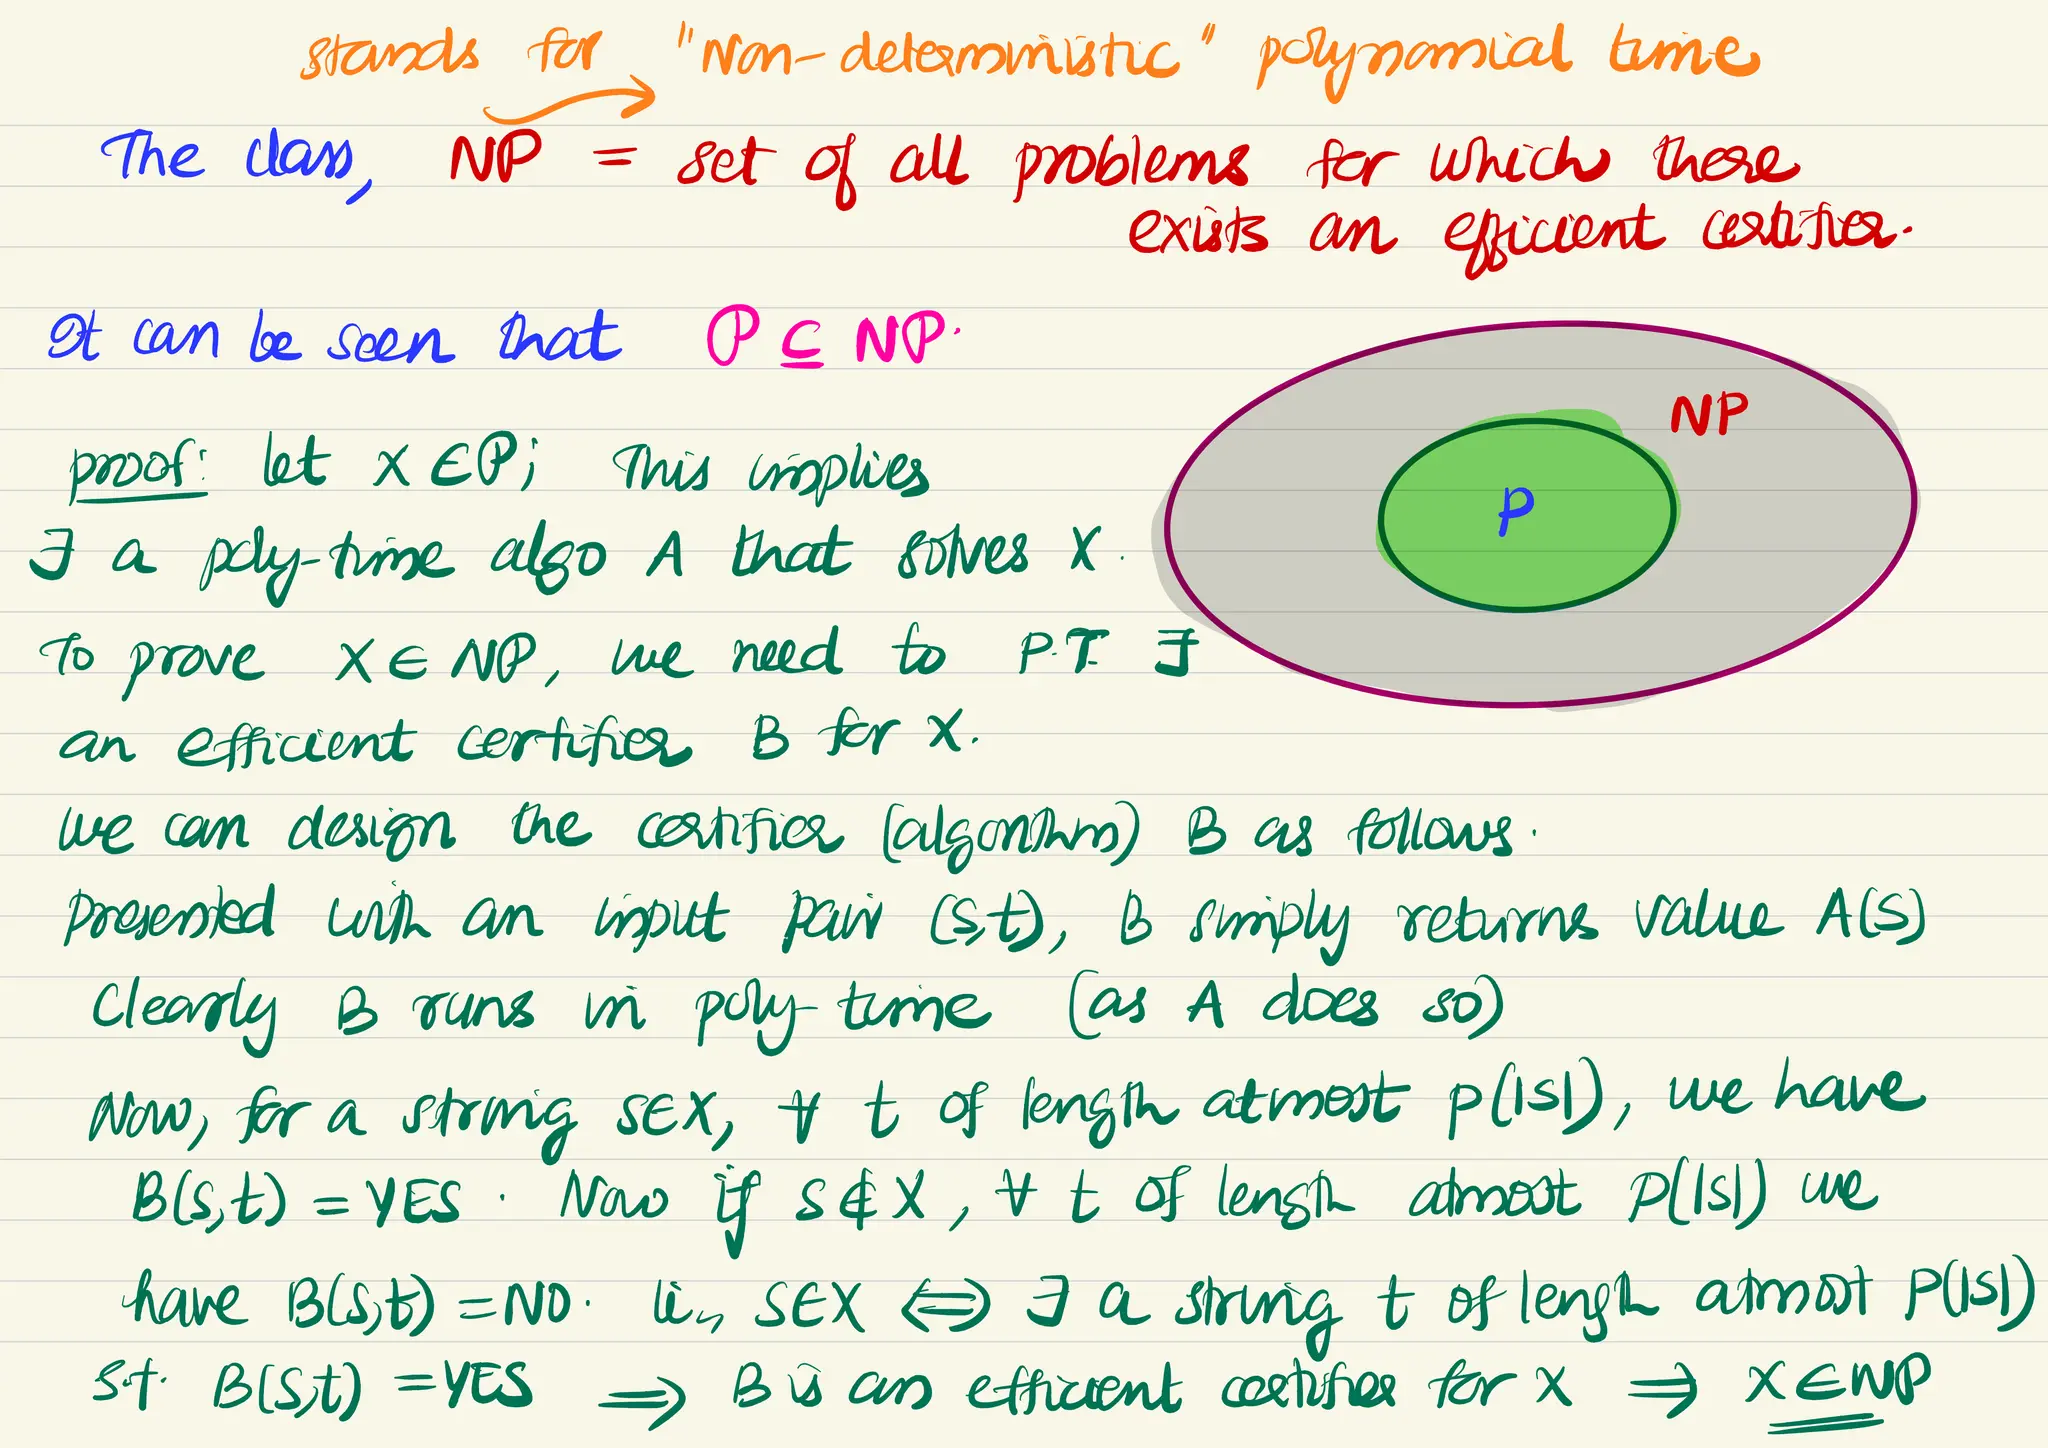 stands for "Non-deterministic" polynomial time
The class, NP = set of all problems for which there
exists an efficient certifier.
It can be seen that P ⊆ NP.
NP
P
proof: let X ∈ P; This implies
∃ a poly-time algo A that solves X.
To prove X ∈ NP, we need to P.T. ∃
an efficient certifier B for X.
we can design the certifier (algorithm) B as follows.
presented with an input pair (s,t), B simply returns value A(s)
Clearly B runs in poly-time (as A does so)
Now, for a string s∈X, ∀ t of length atmost p(|s|), we have
B(s,t) = YES. Now if s∉X, ∀ t of length atmost p(|s|) we
have B(s,t) = NO. ie., s∈X ⟺ ∃ a string t of length atmost p(|s|)
s.t. B(s,t) = YES ⟹ B is an efficient certifier for X ⟹ X∈NP